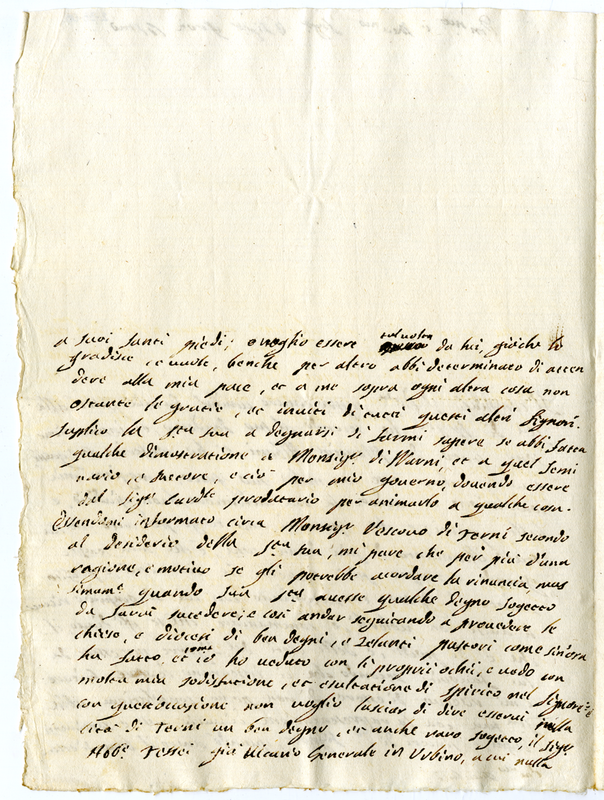 a suoi santi piedi; e voglio essere talvolta da lui, gioiche lo
gradisce, e vuole, benche per altro abbi determinato di atten
dere alla mia pace, et a me sopra ogni altra cosa non
ostante le gratie, et inuiti di tutti questi altri Signori.
Suplico la Stà sua a degnarsi di farmi sapere se abbi fatta
qualche dimostratione a Monsigr. di Narni, et a quel Semi
nario, e Rettore, e ciò per mio governo, dovendo essere
dal Sigr. Cardle prodatario per animarlo a qualche cosa.
Essendomi informato circa Monsigr. Vescovo di Terni secondo
al desiderio della Stà sua, mi pare che per più d'una
ragione, e motivo se gli potrebbe acordare la rinuncia, mas
simamte quando sua Stà avesse qualche degno sogetto
da farui succedere; e così andar seguitando a prouedere le
chiese, e diocesi di ben degni, e Zelanti pastori come sin'ora
ha fatto, et io come ho ueduto con li proprii ochii, e uedo con
molta mia sodisfatione, et esultatione di spirito nel Signore
con quest'occasione non voglio lasciar di dire esserui nella
Città di Terni un ben degno, et anche raro sogetto, il Sigr.
Abbe Tessei già Vicario Generale in Urbino, a cui nulla